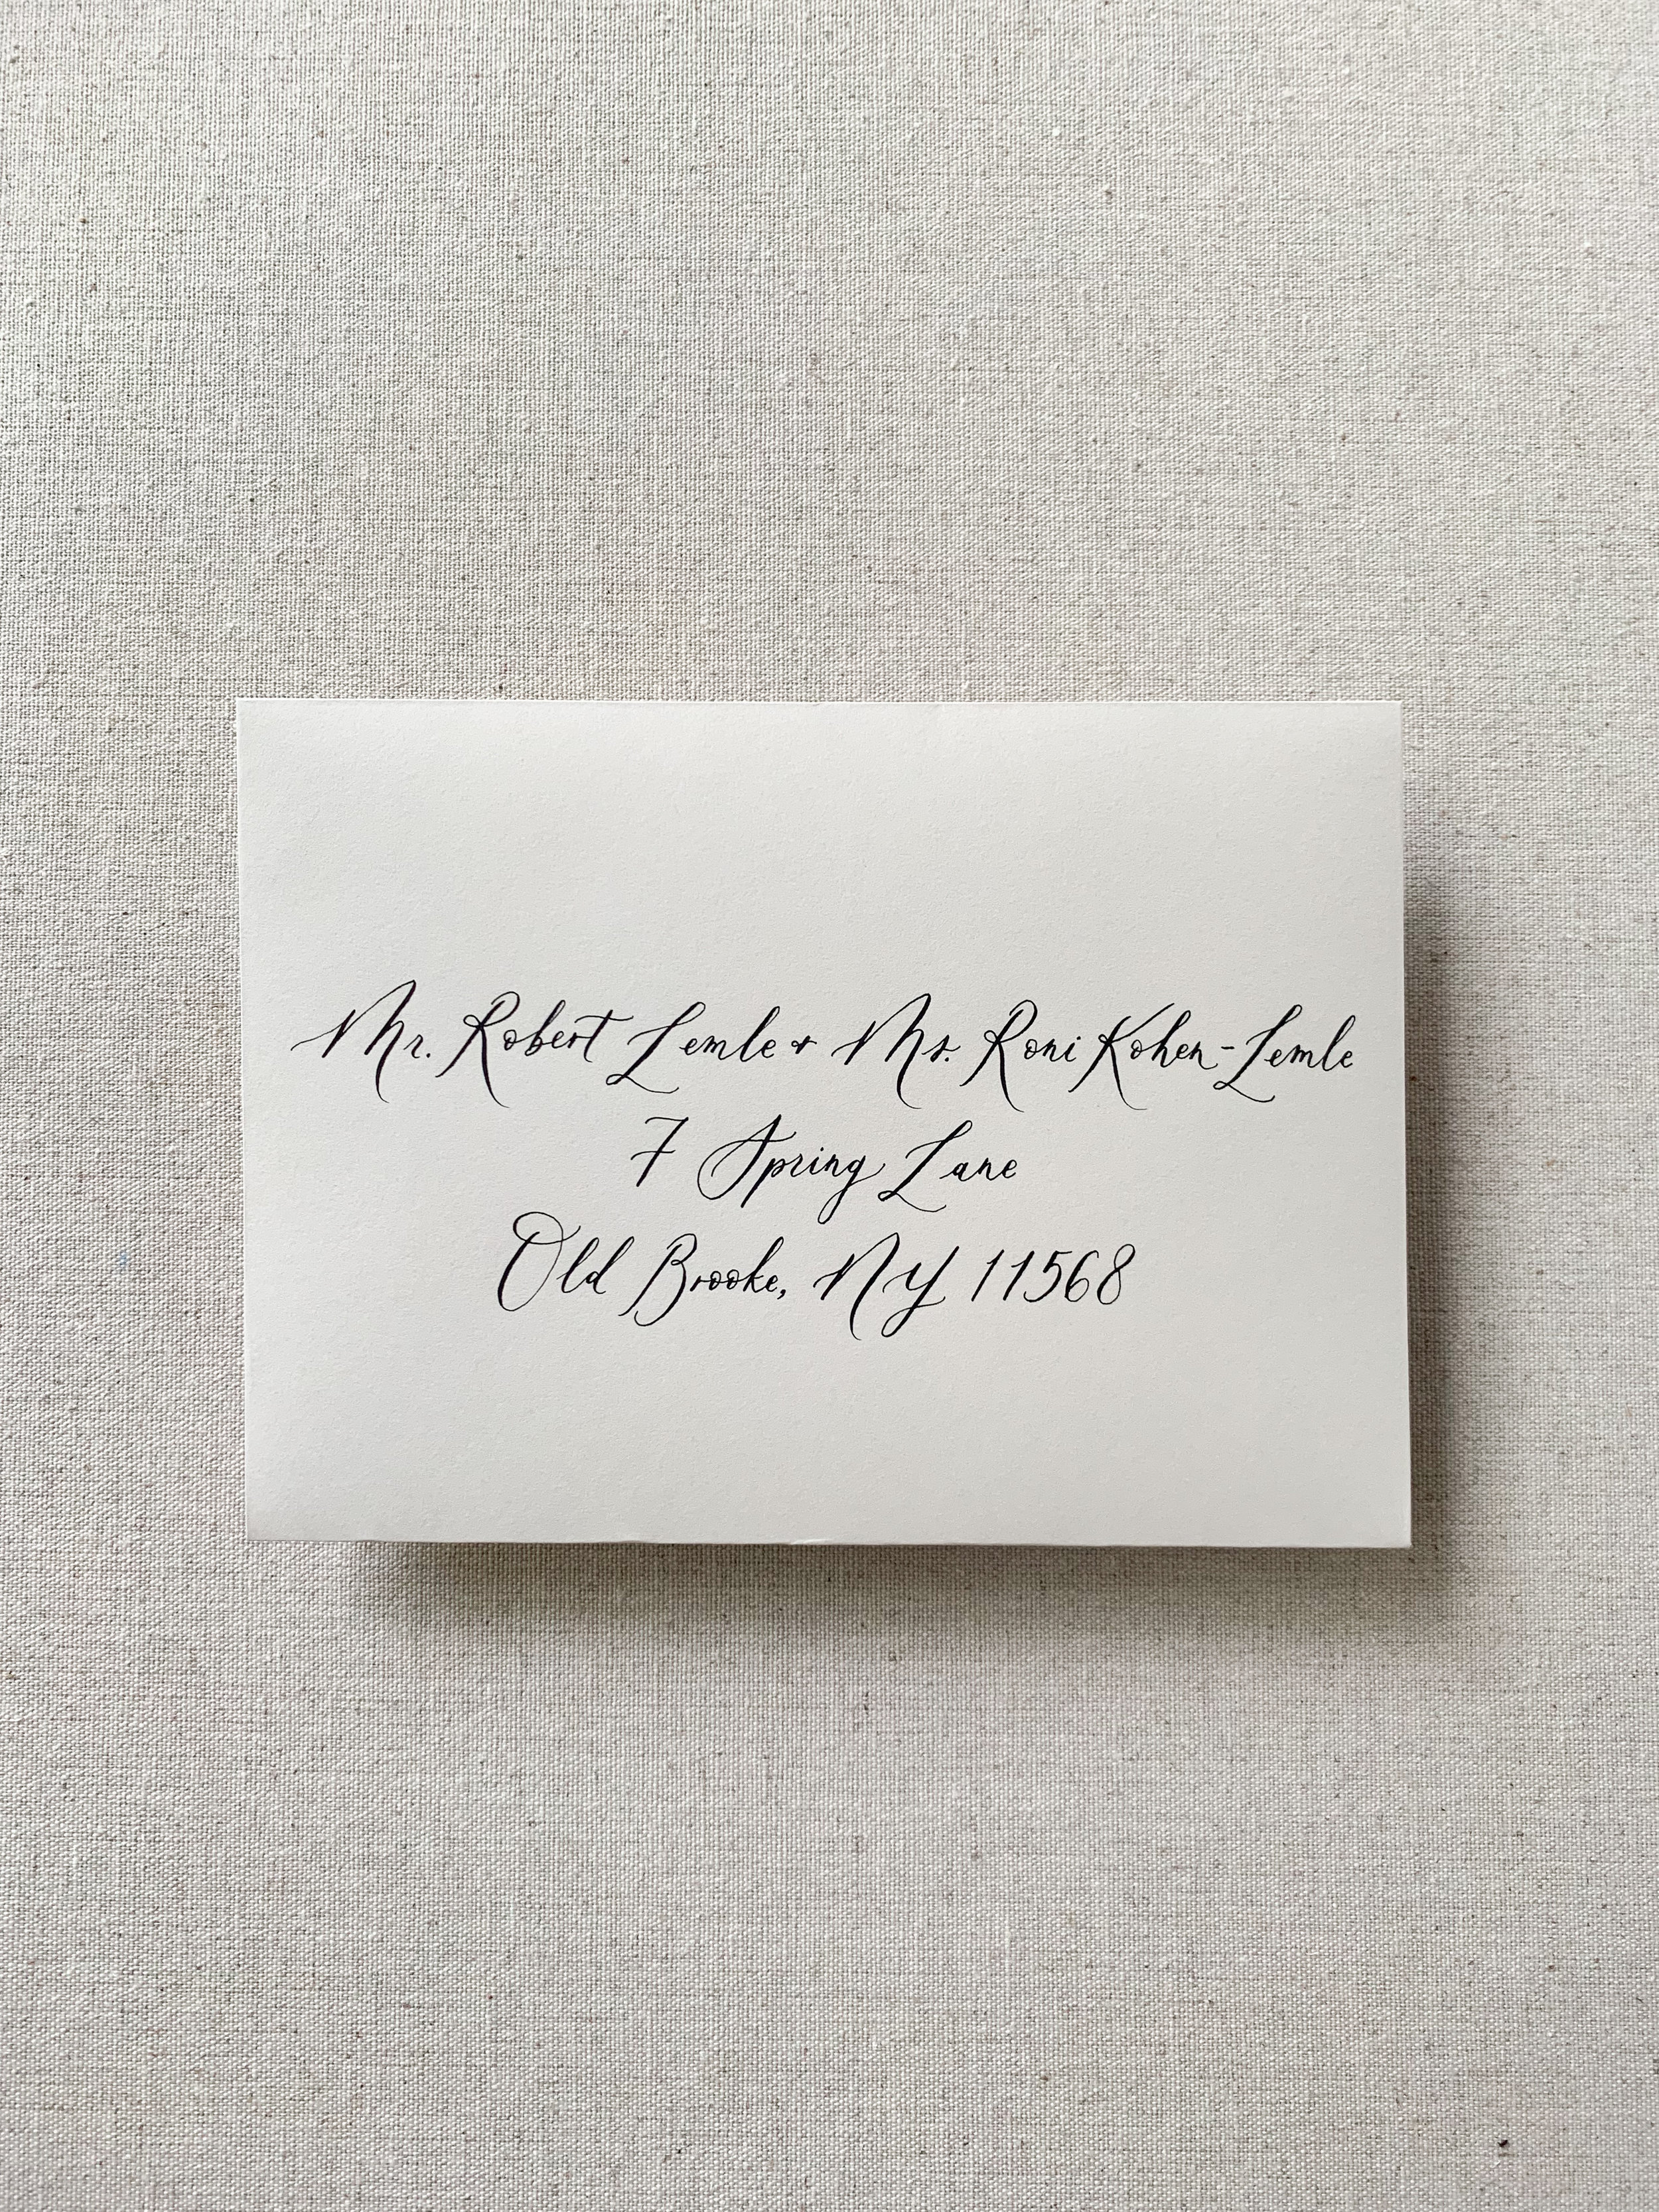 Mr. Robert Lemle & Ms. Roni Kohen-Lemle
7 Spring Lane
Old Brooke, NY 11568